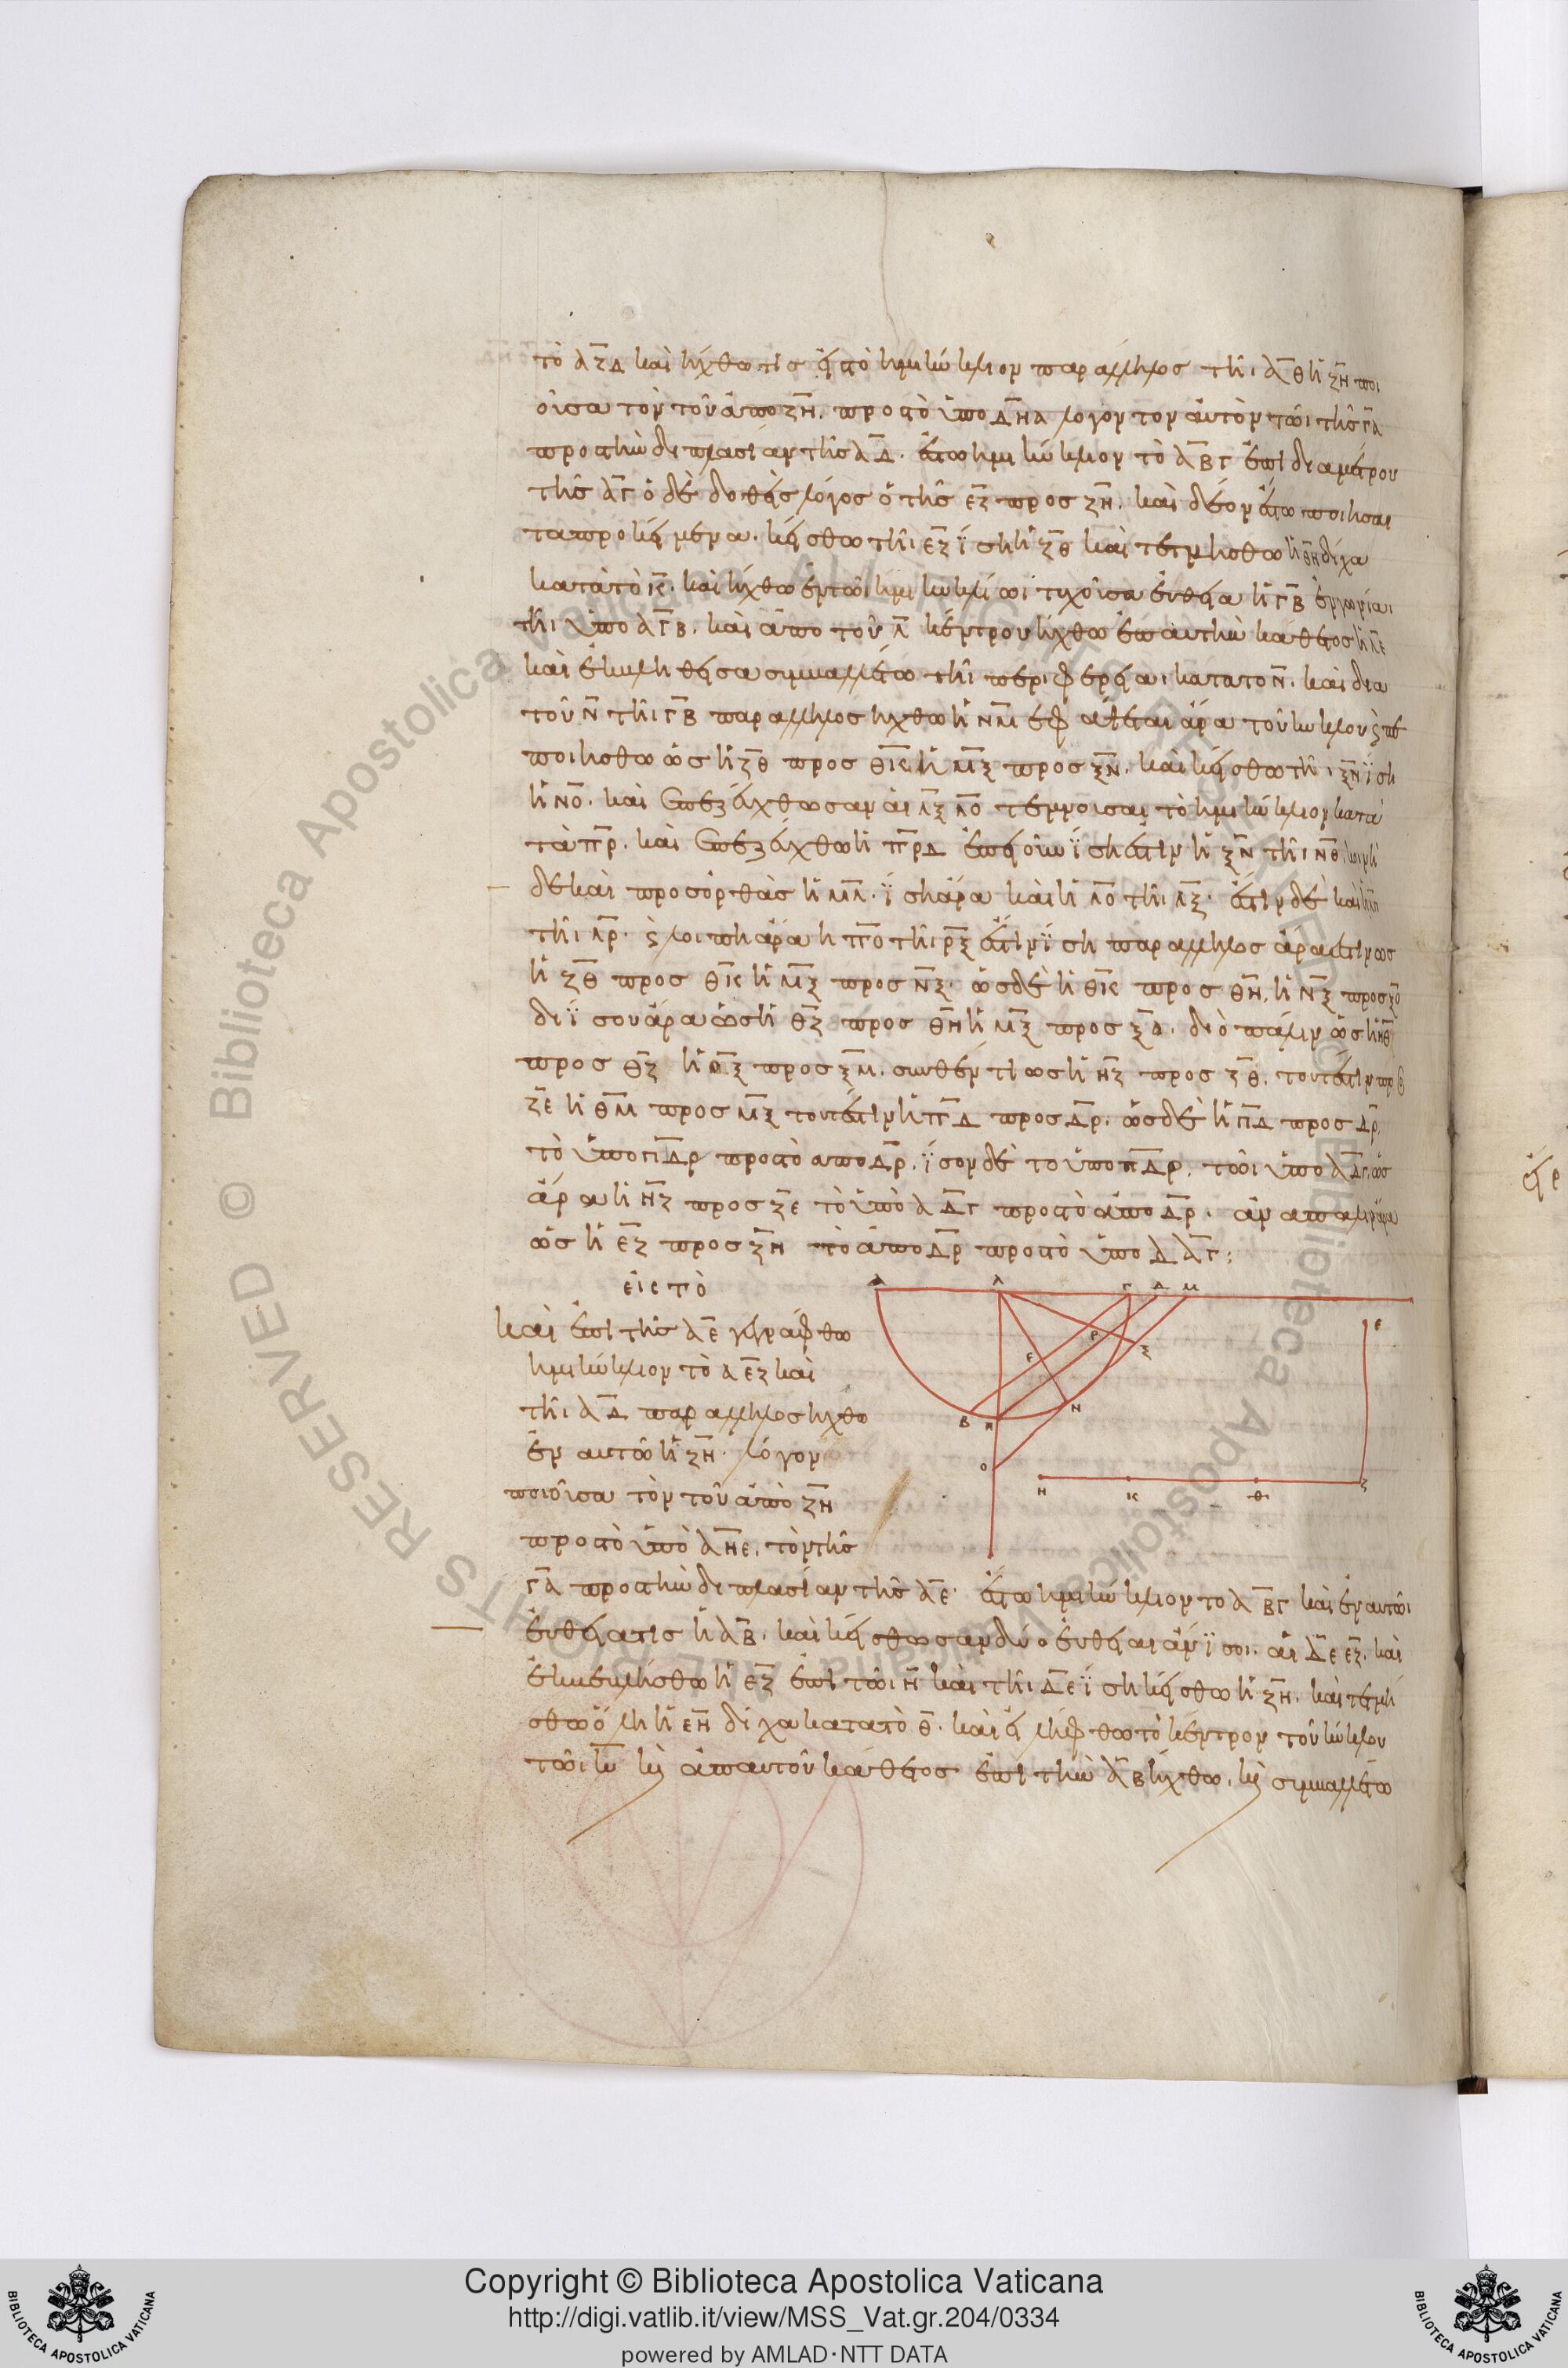 τὸ ΑΖΔ καὶ ἤχθω τις εἰς τὸ ἡμικύκλιον παράλληλος τῆι ΑΘ ἡ ΖΗ ποι
οῦσα τὸν τοῦ ἀπο ΖΗ. προς τὸ ὑπο ΔΗΑ λογον τον αὐτὸν τῶι τῆς ΓΑ
προς τὴν διπλασίαν τῆς ΑΔ. ἔστω ἡμικύκλιον τὸ ΑΒΓ ἐπι διαμέτρου
τῆς ΑΓ ὁ δὲ δοθεὶς λόγος ὁ τῆς ΕΖ προς ΖΗ. καὶ δέον ἔστω ποιησαι
τα προκείμενα. κείσθω τῆι ΕΖ ἴση ἡ ΖΘ καὶ τέτμησθω ἡ ΘΗ δίχα
κατὰ τὸ Κ. καὶ ἤχθω ἐν τῶι ἡμικυκλίωι τυχοῦσα εὐθεῖα ἡ ΓΒ ἐν γωνίαι
τῆι ὑπο ΑΓΒ. καὶ ἀπο τοῦ Λ κέντρου ἤχθω ἐπ αυτὴν κάθετος ἡ ΛΕ
καὶ ἐκβληθεῖσα συμβαλλέτω τῆι περιφερείαι κατα το Ν. καὶ δια
τοῦ Ν τῆι ΓΒ παραλληλος ηχθω ἡ ΝΜ ἐφάψεται ἄρα τοῦ κυκλου
ποιησθω ὡς ἡ ΖΘ προς ΘΚ ἡ ΜΞ προς ΞΝ. καὶ κείσθω τῆι ΞΝ ἴση
ἡ ΝΟ. καὶ ἐπεζεύχθωσαν αἱ ΛΞ ΛΟ τεμνουσαι τὸ ἡμικύκλιον κατὰ
τὰ ΠΡ. καὶ ἐπεζεύχθω ἡ ΠΡΔ ἐπεὶ οὖν ἴση ἐστιν ἡ ΞΝ τῆι ΝΘ
δε καὶ προς ὀρθὰς ἡ ΝΛ. ἴση ἄρα καὶ ἡ ΛΟ τῆι ΛΞ. ἔστιν δὲ καὶ
τῆι ΛΡ. λοιπη ἄρα ἡ ΠΟ τῆι ΡΞ ἔστιν ἴση παραλληλος ἄρα ἐστιν ως
ἡ ΖΘ προς ΘΚ ἡ ΜΞ προς ΝΞ. ὡς δὲ ἡ ΘΚ προς ΘΗ. ἡ ΝΞ προς ΞΟ
δι ἴσου ἄρα ὡς ἡ ΘΖ προς ΘΗ ἡ ΜΞ προς ΞΟ. διὸ πάλιν ὡς ἡ ΗΘ
προς ΘΖ ἡ ΟΞ προς ΞΜ. συνθέντι ως ἡ ΗΖ προς ΖΘ. τουτέστιν προς
ΖΕ ἡ ΘΜ προς ΜΞ τουτέστιν ἡ ΠΔ προς ΔΡ. ὡς δὲ ἡ ΠΔ προς ΔΡ.
τὸ ὑπο ΠΔΡ προς τὸ απο ΔΡ. ἴσον δὲ το ὑπο ΠΔΡ. τῶι ὑπο ΑΔΓ. ὡς
ἄρα ἡ ΗΖ προς ΖΕ τὸ ὑπὸ ΑΔΓ προς τὸ ἀπο ΔΡ. ἀναπαλιν ἄρα
ὡς ἡ ΕΖ προς ΖΗ τὸ ἀπο ΔΡ προς τὸ ὑπο ΔΑΓ:
εἰς τὸ
καὶ ἐπι τῆς ΑΕ γεγράφθω
ἡμικύκλιον τὸ ΑΕΖ καὶ
τῆι ΑΔ παραλληλος ηχθω
ἐν αυτῶ ἡ ΖΗ. λόγον
ποιοῦσα τὸν τοῦ ἀπὸ ΖΗ
προς τὸ ὑπὸ ΑΗΕ. τὸν τῆς
ΓΑ προς τὴν διπλασίαν τῆς ΑΕ. ἔστω ἡμικύκλιον το ΑΒΓ καὶ ἐν αυτῶι
εὐθεῖα τις ἡ ΑΒ. καὶ κείσθωσαν δύο εὐθεῖαι ἄνισοι. αἱ ΔΕ ΕΖ. καὶ
ἐκβεβλήσθω ἡ ΕΖ ἐπι τῶι Η καὶ τῆι ΔΕ ἴση κείσθω ἡ ΖΗ. καὶ τετμή
σθω ὅλη ἡ ΕΗ δίχα κατα τὸ Θ. καὶ εἰλήφθω τὸ κέντρον τοῦ κύκλου
καὶ ἀπ αυτοῦ κάθετος ἐπι τὴν ΑΒ ἤχθω. καὶ συμβαλλέτω
Λ Γ Δ Μ
Ε
Ρ
Ε Ξ
Β Π Ν
Ο
Η Κ Θ Ζ
© Biblioteca Apostolica Vaticana
ALL RIGHTS RESERVED
Copyright © Biblioteca Apostolica Vaticana
http://digi.vatlib.it/view/MSS_Vat.gr.204/0334
powered by AMLAD·NTT DATA
BIBLIOTECA APOSTOLICA VATICANA
BIBLIOTECA APOSTOLICA VATICANA